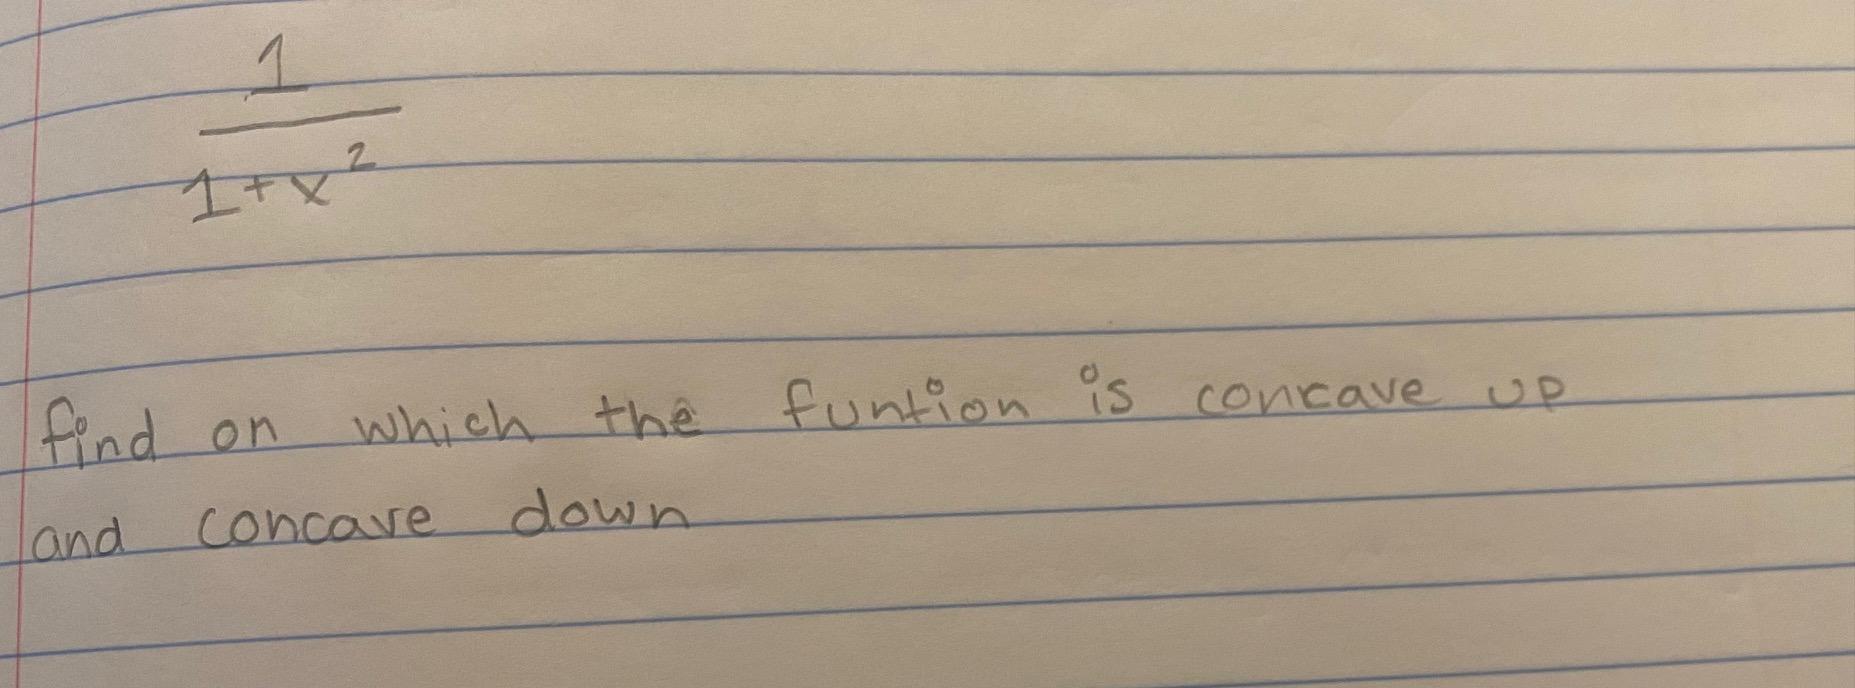 1
1+x²
find on which the funtion is concave up
and concave down